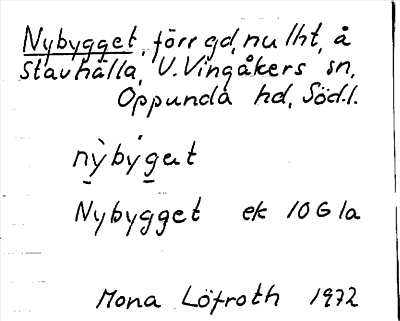 Nybygget, förr gd, nu lht, å
Stavhälla, V. Vingåkers sn,
Oppunda hd, Södl.
nỳbýgat
Nybygget ek 10 G 1a
Mona Löfroth 1972